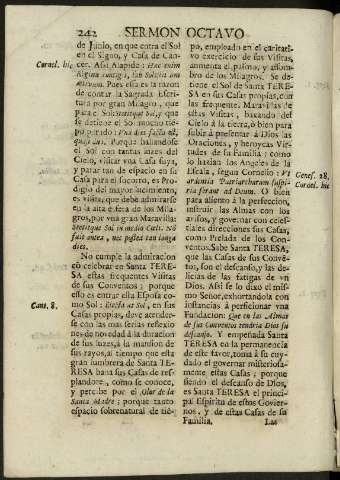 242 SERMON OCTAVO
de Junio, en que entra el Sol
en el Signo, y Casa de Can-
cer. Assi Alapide: Hac enim
Cornel. hic
signa contigit, sub Solstitium
Pues esta es la razon
de contar la Sagrada Escri-
tura por gran Milagro, que
para el Sol, y que
se detiene el Sol mucho tié-
po parado: Una dies facta est,
quasi duo. Porque hallandose
el Sol con tantas luzes del
Cielo, visitar vna Casa suya,
y parar tan de espacio en su
Casa para el socorro, es Pro-
digio del mayor lucimiento,
es visita, que debe admirarse
en la alta esfera de los Mila-
gros, por vna gran Maravilla:
Stetitque Sol in medio Cœli. Nõ
fuit antea, nec postea tam longa
dies.
No cumple la admiracion
cõ celebrar en Santa TERE-
SA estas frequentes Visitas
de sus Conventos; porque co-
mo es entrar ella Esposa co-
mo Sol: Electa ut Sol, en sus
Cant. 8.
Casas propias, deve atender-
se con las mas serias reflexio-
nes de novedad à la duracion
de sus luzes, à la mansion de
sus rayos, al tiempo que esta
gran lumbrera de Santa TE-
RESA baña sus Casas de res-
plandores, como se conoce,
y percibe por el Olor de la
Santa Madre; porque tanto
espacio sobrenatural de tié-
po, empleado en el caritati-
vo exercicio de sus Visitas,
aumenta el pasmo, y assom-
bro de los Milagros. Se de-
tiene el Sol de Santa TERE-
SA en sus Casas propias, con
las frequentes Maravillas de
estas Visitas, baxando del
Cielo à la tierra, ò bien para
subir à presentar à Dios las
Oraciones, y heroycas Vir-
tudes de su Familia; como
lo hazian los Angeles de la
Escala, segun Cornelio: Vt
Genes. 28.
ardentia Patriarcharum suspi-
ria ferant ad Deum. O bien
Cornel. hic
para aliento à la perfeccion,
instruir las Almas con los
avisos, y governar con celes-
tiales direcciones sus Casas,
como Prelada de los Con-
ventos. Sabe Santa TERESA,
que las Casas de sus Convẽ-
tos, son el descanso, y las de-
licias de las fatigas de vn
Dios. Assi se lo dixo el mis-
mo Señor, exhortandola con
instancias à perficionar vna
Fundacion: Que en las Almas
de sus Conventos tendria Dios su
descanso. Y empeñada Santa
TERESA en la permanencia
de este favor, toma à su cuy-
dado el governar misteriosa-
mente estas Casas; porque
siendo el descanso de Dios,
es Santa TERESA el princi-
pal Espiritu de estos Govier-
nos, y de estas Casas de su
Familia.